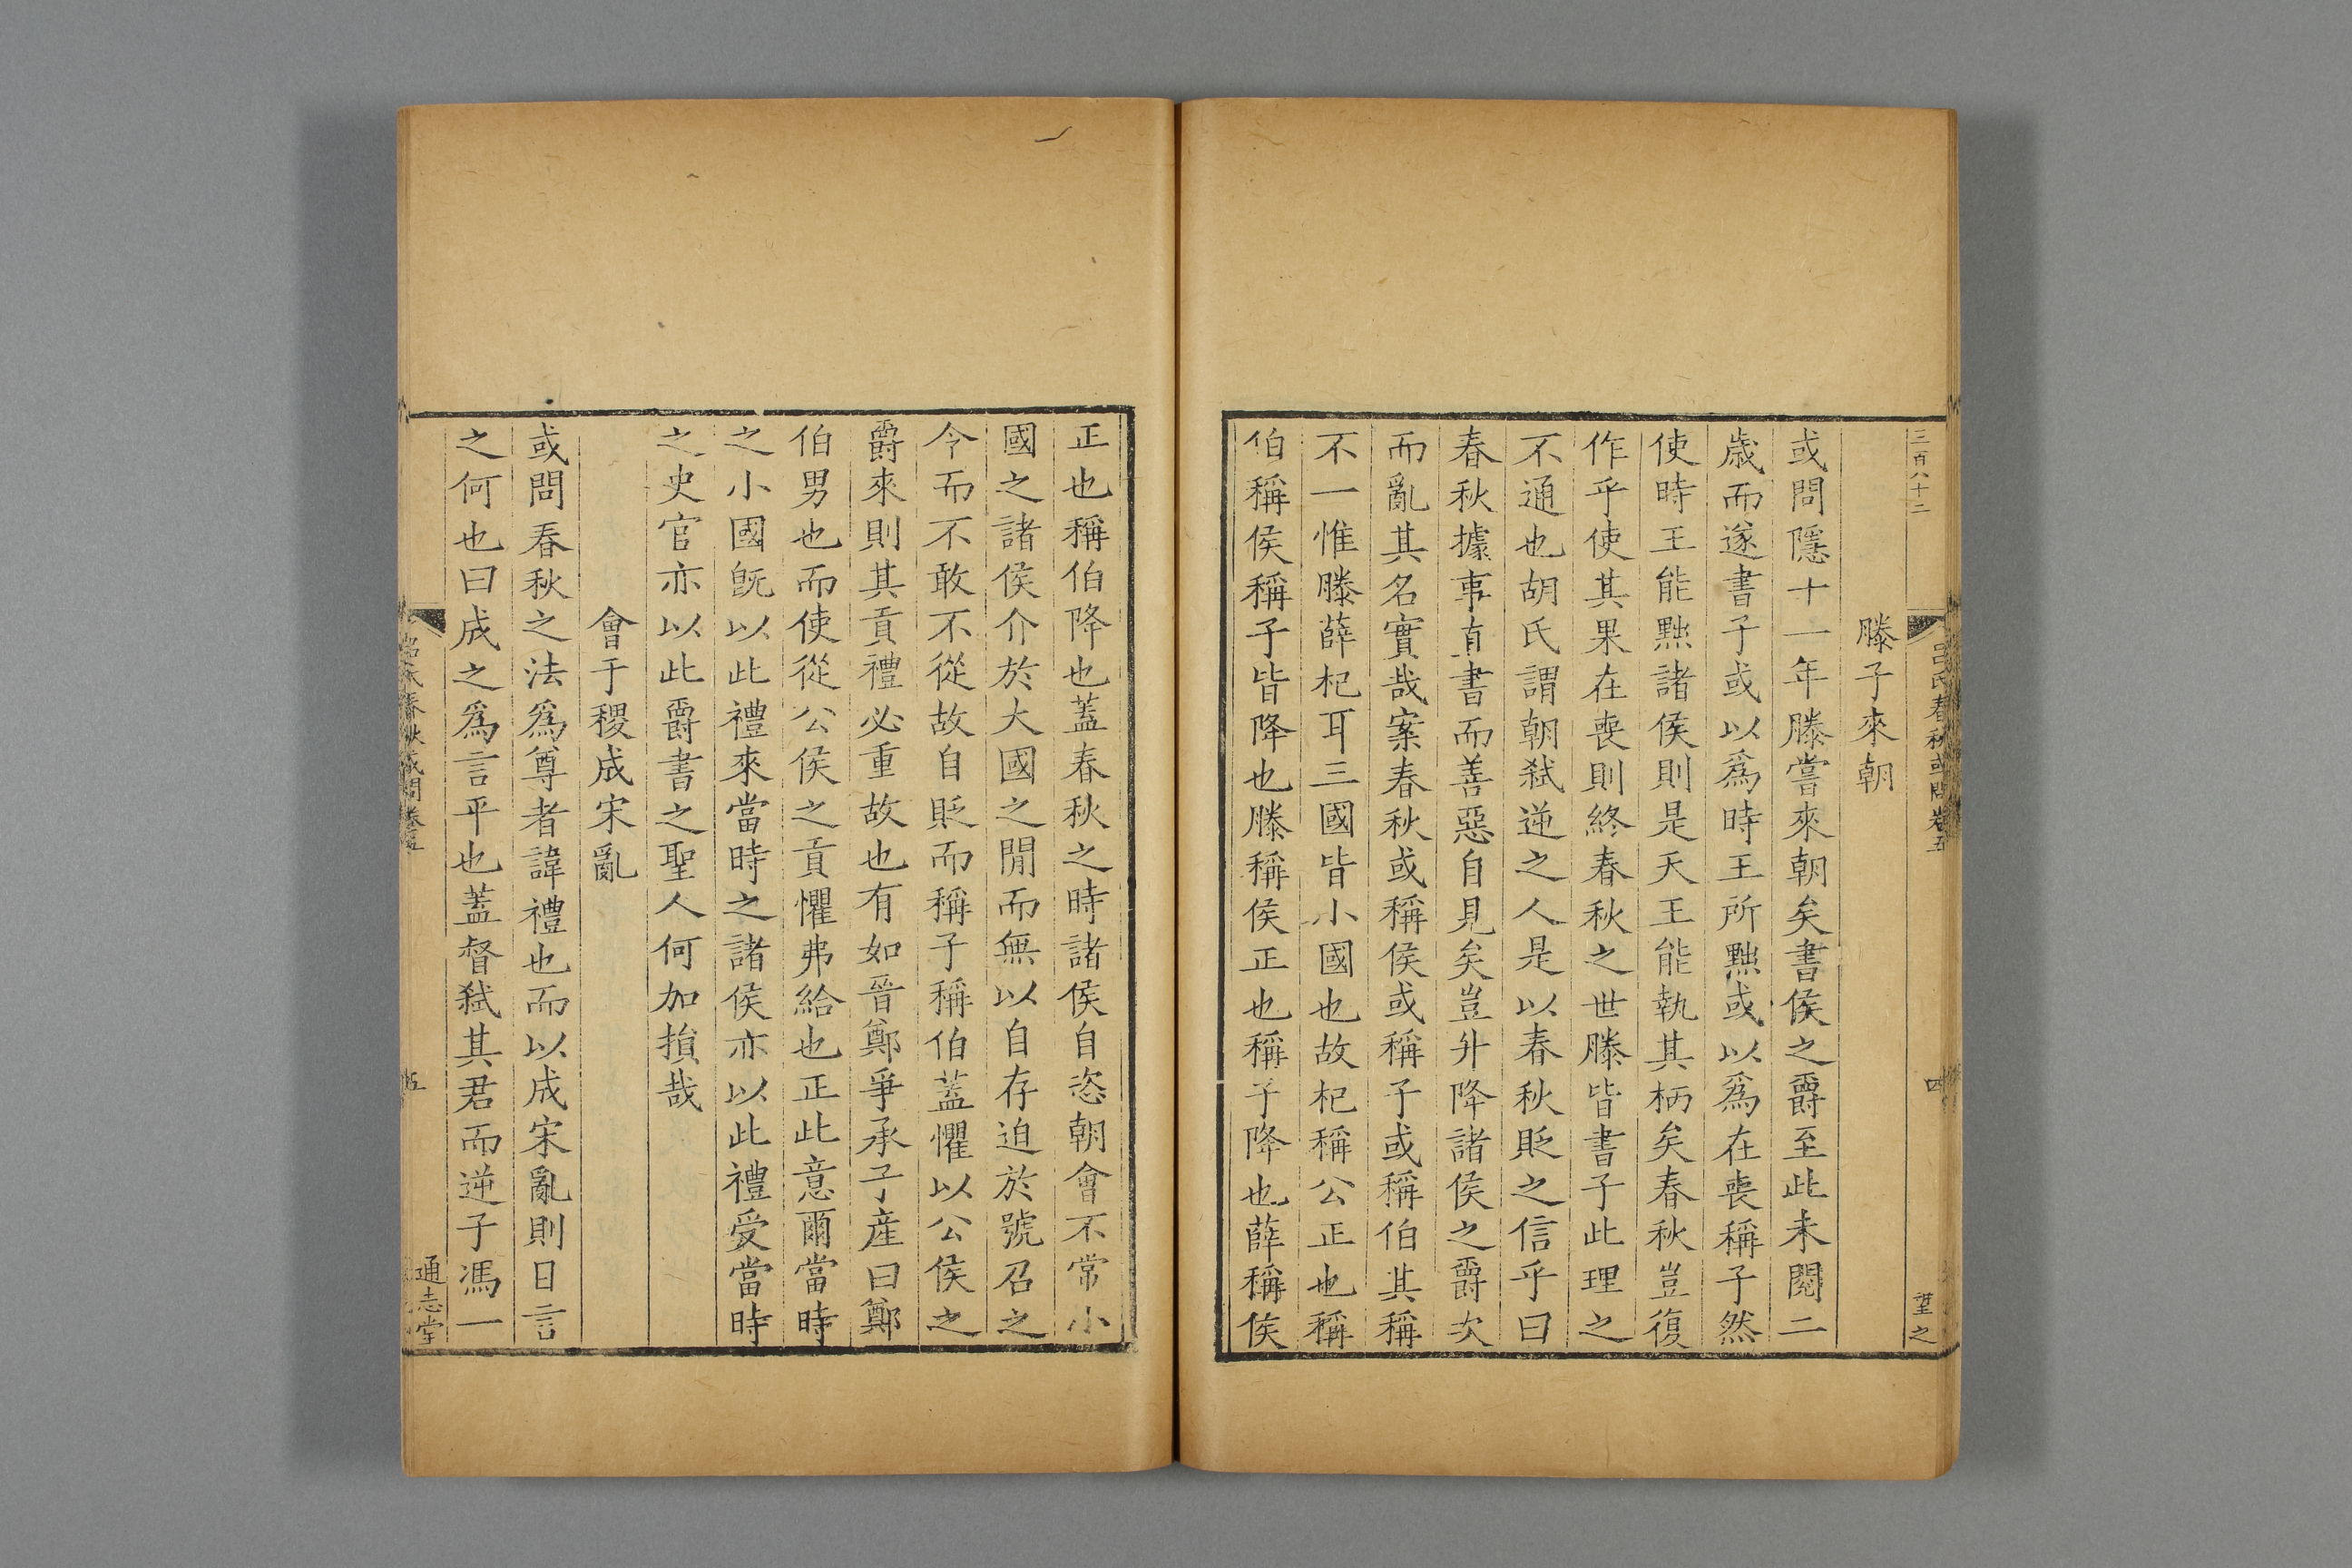 三百八十二
呂氏春秋或問卷五
四
望之
滕子來朝
或問隱十一年滕嘗來朝矣書侯之爵至此未閱二
歲而遂書子或以爲時王所黜或以爲在喪稱子然
使時王能黜諸侯則是天王能執其柄矣春秋豈復
作乎使其果在喪則終春秋之世滕皆書子此理之
不通也胡氏謂朝弑逆之人是以春秋貶之信乎曰
春秋據事直書而善惡自見矣豈升降諸侯之爵次
而亂其名實哉案春秋或稱侯或稱子或稱伯其稱
不一惟滕薛杞耳三國皆小國也故杞稱公正也稱
伯稱侯稱子皆降也滕稱侯正也稱子降也薛稱侯
正也稱伯降也蓋春秋之時諸侯自恣朝會不常小
國之諸侯介於大國之閒而無以自存迫於號召之
令而不敢不從故自貶而稱子稱伯蓋懼以公侯之
爵來則其貢禮必重故也有如晉鄭爭承子産曰鄭
伯男也而使從公侯之貢懼弗給也正此意爾當時
之小國旣以此禮來當時之諸侯亦以此禮受當時
之史官亦以此爵書之聖人何加損哉
會于稷成宋亂
或問春秋之法爲尊者諱禮也而以成宋亂則日言
之何也曰成之爲言平也蓋督弑其君而逆子馮一
呂氏春秋或問卷五
五
通志堂